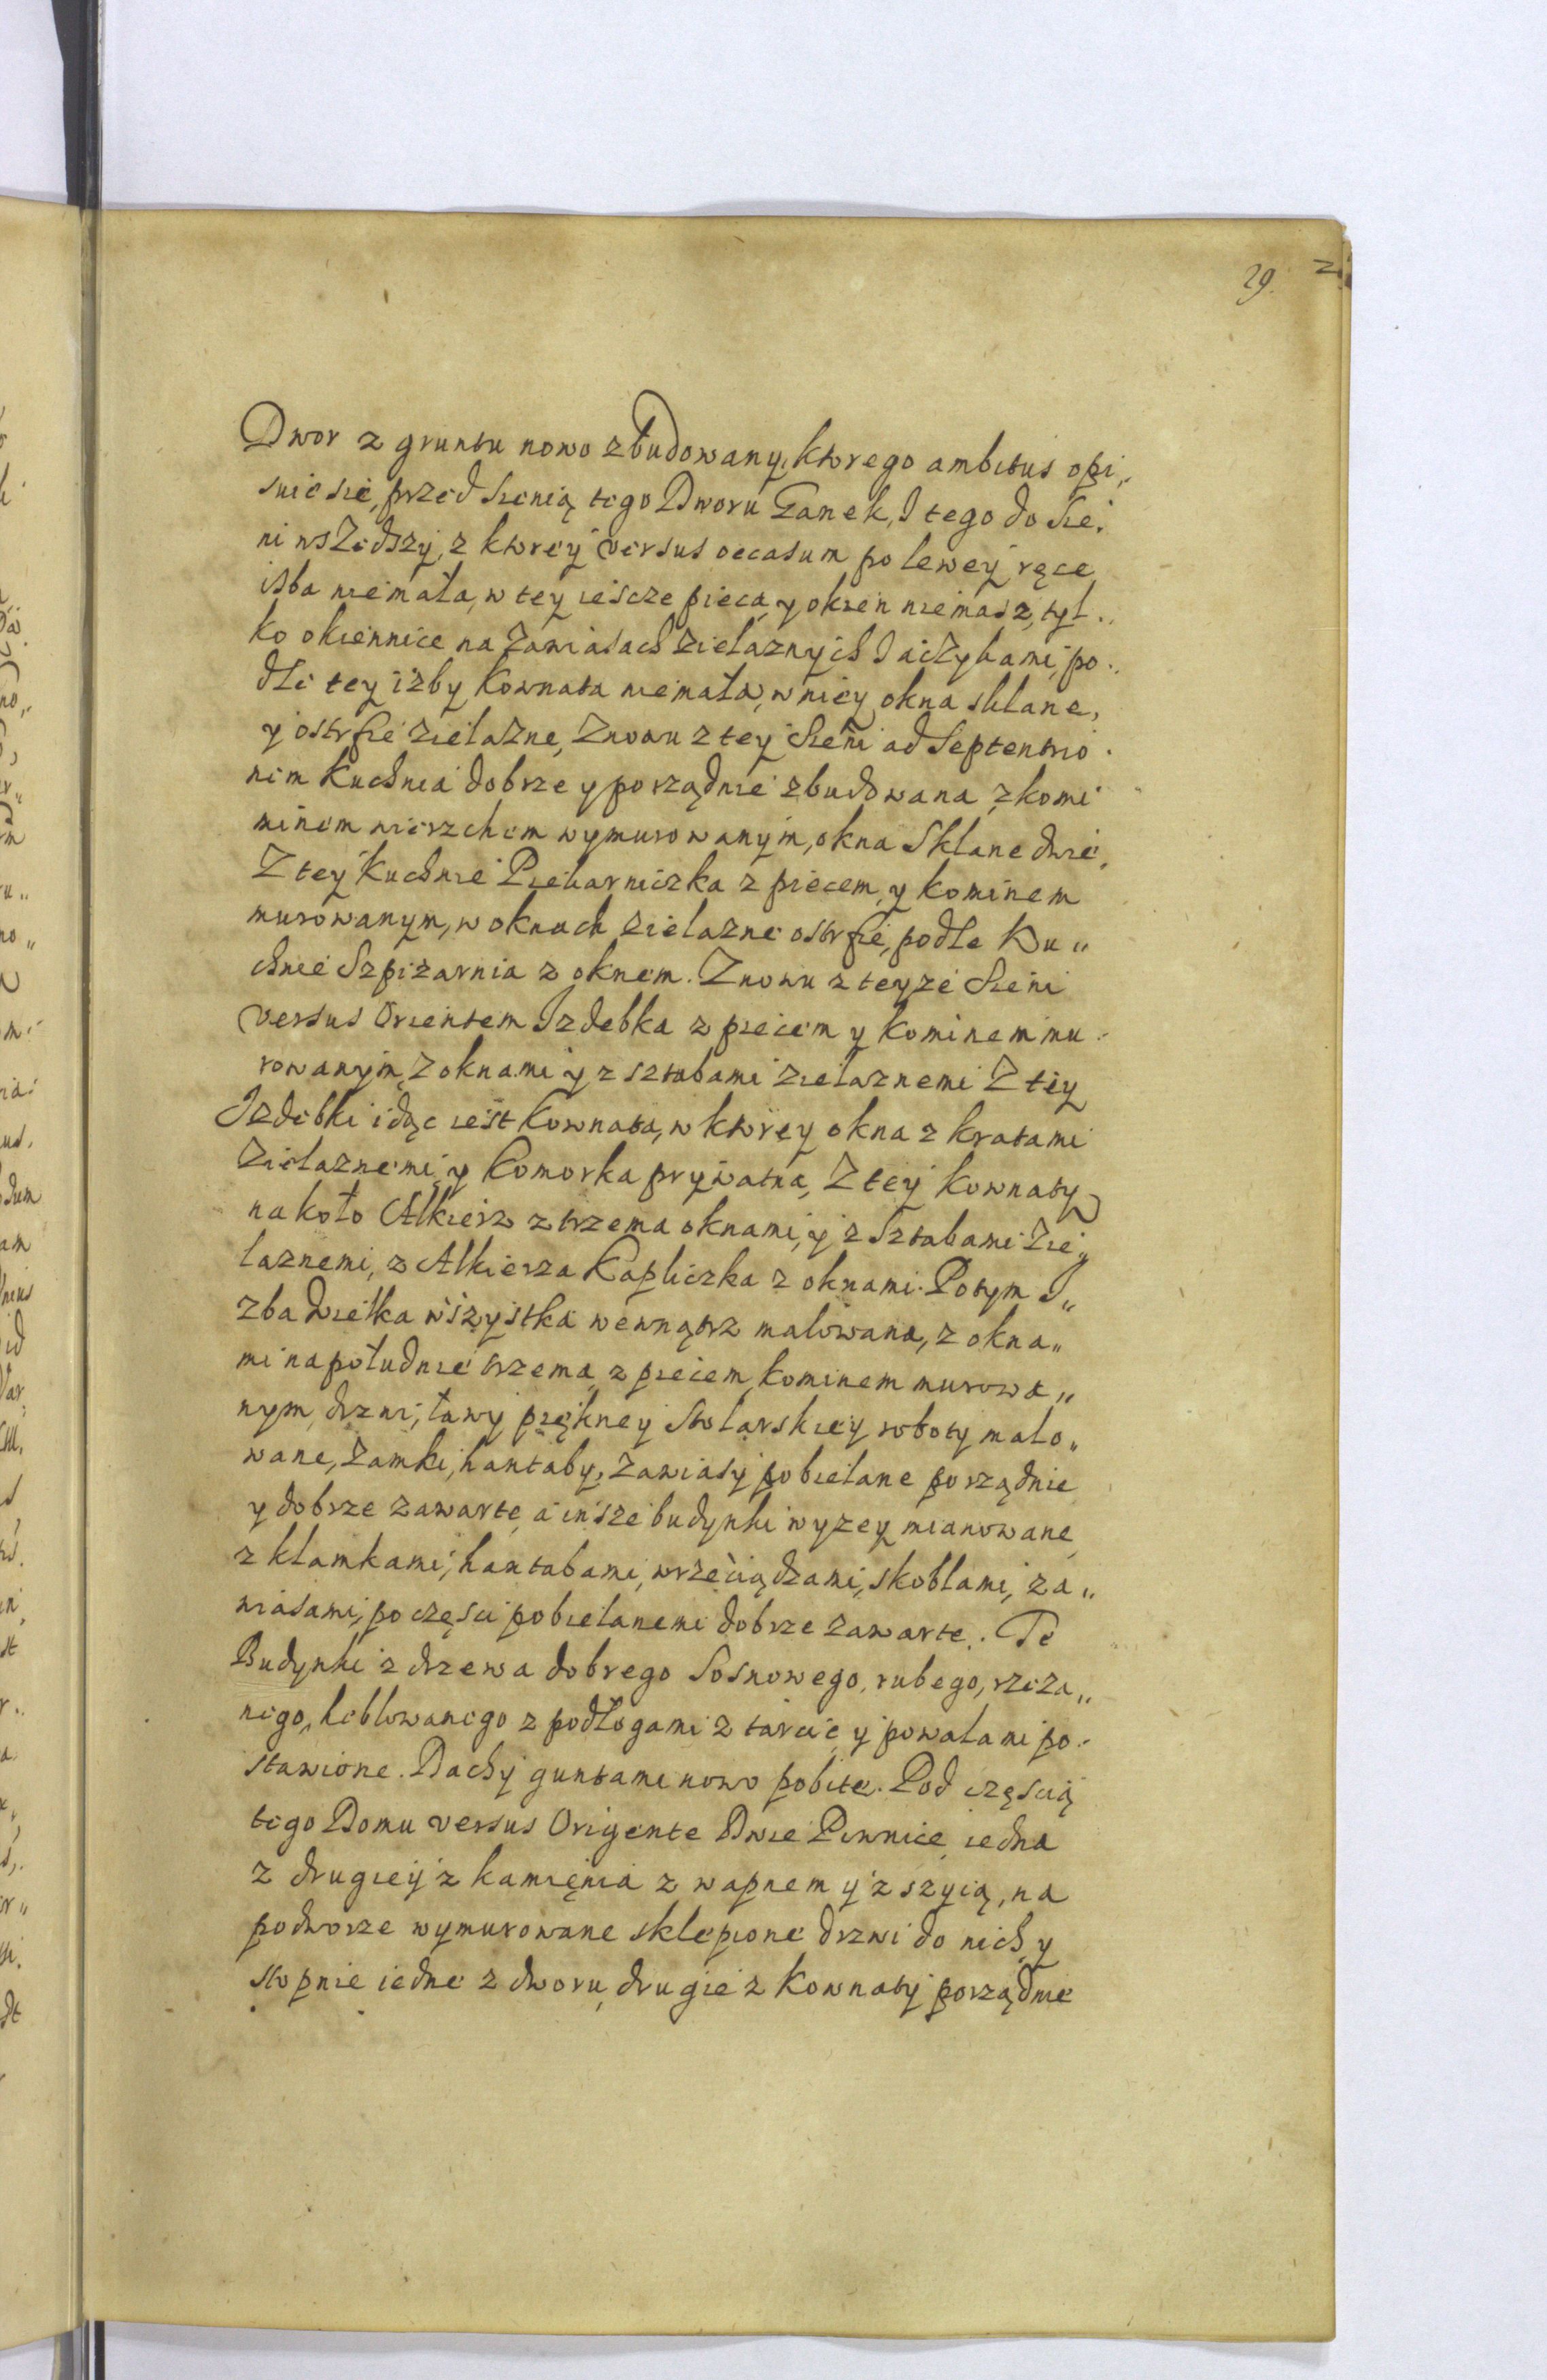 29.
Dwor z gruntu nowo zbudowany, ktorego ambitus opi„
suie sie, przed sienią tego Dworu Ganek, I tego do Sie„
ni wszedszy, z ktorey versus occasum po lewey ręce
izba niemała, w tey ieszcze pieca y okien niemasz, tyl„
ko okiennice na zawiasach zielaznych I aczykami, po„
dle tey izby Kownata niemała, w niey okna sklane,
y ostrsie zielazne, Znowu z tey Sieni ad Septentrio„
nem Kuchnia dobrze y porządnie zbudowana z komi
minem wierzchem wymurowanym, okna Sklane dwie,
Z tey Kuchnie Piekarniczka z piecem, y kominem
murowanym, w oknach zielazne ostrsie, podle Ku„
chnie Szpizarnia z oknem. Znowu z teyze Sieni
versus Orientem Izdebka z piecem y kominem mu„
rowanym, z oknami y z sztabami zielaznemi Z tey
Izdebki idąc iest Kownata, w ktorey okna z kratami
zielaznemi, y Komorka prywatna, Z tey Kownaty
na koło Alkierz z trzema oknami, y z Sztabami zie„
laznemi, z Alkierza Kapliczka z oknami. Potym I„
zba wielka wszystka wewnątrz malowana, z okna„
mi na południe trzema, z piecem, kominem murowa„
nym, drzwi, ławy piękney Stolarskiey roboty malo„
wane, zamki, hantaby, zawiasy pobielane porządnie
y dobrze zawarte, a insze budynki wyzey mianowane
z klamkami, hantabami, wrzeciądzami, skoblami, za„
wiasami, po częsci pobielanemi dobrze zawarte. Te
Budynki z drzewa dobrego Sosnowego, rubego, rzeza„
nego, heblowanego z podłogami z tarcic y powałami po„
stawione. Dachy guntami nowo pobite. Pod częscią
tego Domu versus Origente Dwie Piwnice iedna
z drugiey z kamięnia z wapnem y z szyią, na
podworze wymurowane sklepione drzwi do nich y
stopnie iedne z dworu, drugie z Kownaty porządnie